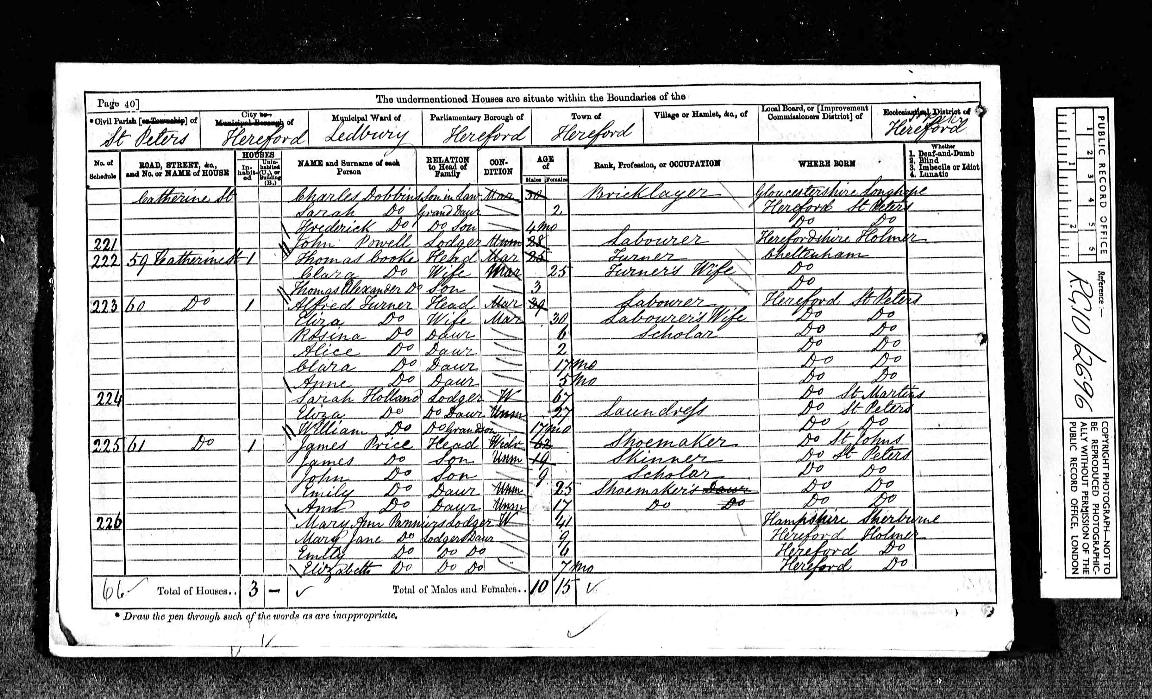 Page 40]
The undermentioned Houses are situate within the Boundaries of the
*Civil Parish [or Township] of
City or Municipal Borough of
Municipal Ward of
Parliamentary Borough of
Town of
Village or Hamlet, &c., of
Local Board, or [Improvement Commissioners District] of
Ecclesiastical District of
St Peters Hereford Ledbury Hereford Hereford Hereford
No. of Schedule
ROAD, STREET, &c., and No. or NAME of HOUSE
HOUSES
In-habit-ed
Unin-habited (U.), or Building (B.)
NAME and Surname of each Person
RELATION to Head of Family
CON-DITION
AGE of
Males Females
Rank, Profession, or OCCUPATION
WHERE BORN
Whether
1. Deaf-and-Dumb
2. Blind
3. Imbecile or Idiot
4. Lunatic
Catherine St Charles Dobbins Son in Law Mar 30 Bricklayer Gloucestershire Longhope
Sarah Do Grand Daur 2 Hereford St Peters
Frederick Do Do Son 4 Mo Do Do
221 John Powell Lodger Unm 28 Labourer Herefordshire Holmer
222 59 Catherine St 1 Thomas Cooke Head Mar 25 Turner Cheltenham
Clara Do Wife Mar 25 Turner's Wife Do
Thomas Alexander Do Son 3 Do
223 60 Do 1 Alfred Turner Head Mar 39 Labourer Hereford St Peters
Eliza Do Wife Mar 30 Labourer's Wife Do Do
Rosina Do Daur 6 Scholar Do Do
Alice Do Daur 2 Do Do
Clara Do Daur 17 Mo Do Do
Anne Do Daur 5 Mo Do Do
224 Sarah Holland Lodger W 67 Do St Martins
Eliza Do Do Daur Unm 27 Laundress Do St Peters
William Do Do Grandson 17 Mo Do Do
225 61 Do 1 James Price Head Widr 62 Shoemaker Do St Johns
James Do Son Unm 19 Skinner Do St Peters
John Do Son 9 Scholar Do Do
Emily Do Daur Unm 25 Shoemaker's Daur Do Do
Ann Do Daur Unm 17 Do Do Do Do
226 Mary Ann Lodger W 41 Hampshire Sherburne
Mary Jane Do Lodgers Daur 9 Hereford Holmer
Emily Do Do Do 6 Hereford Do
Elizabeth Do Do Do 7 Mo Hereford Do
66 Total of Houses.. 3 – Total of Males and Females.. 10 15
* Draw the pen through such of the words as are inappropriate.
PUBLIC RECORD OFFICE
1 2 3 4 5 6
1 2
Reference:—
RG10/2696
COPYRIGHT PHOTOGRAPH—NOT TO BE REPRODUCED PHOTOGRAPHIC-ALLY WITHOUT PERMISSION OF THE PUBLIC RECORD OFFICE, LONDON